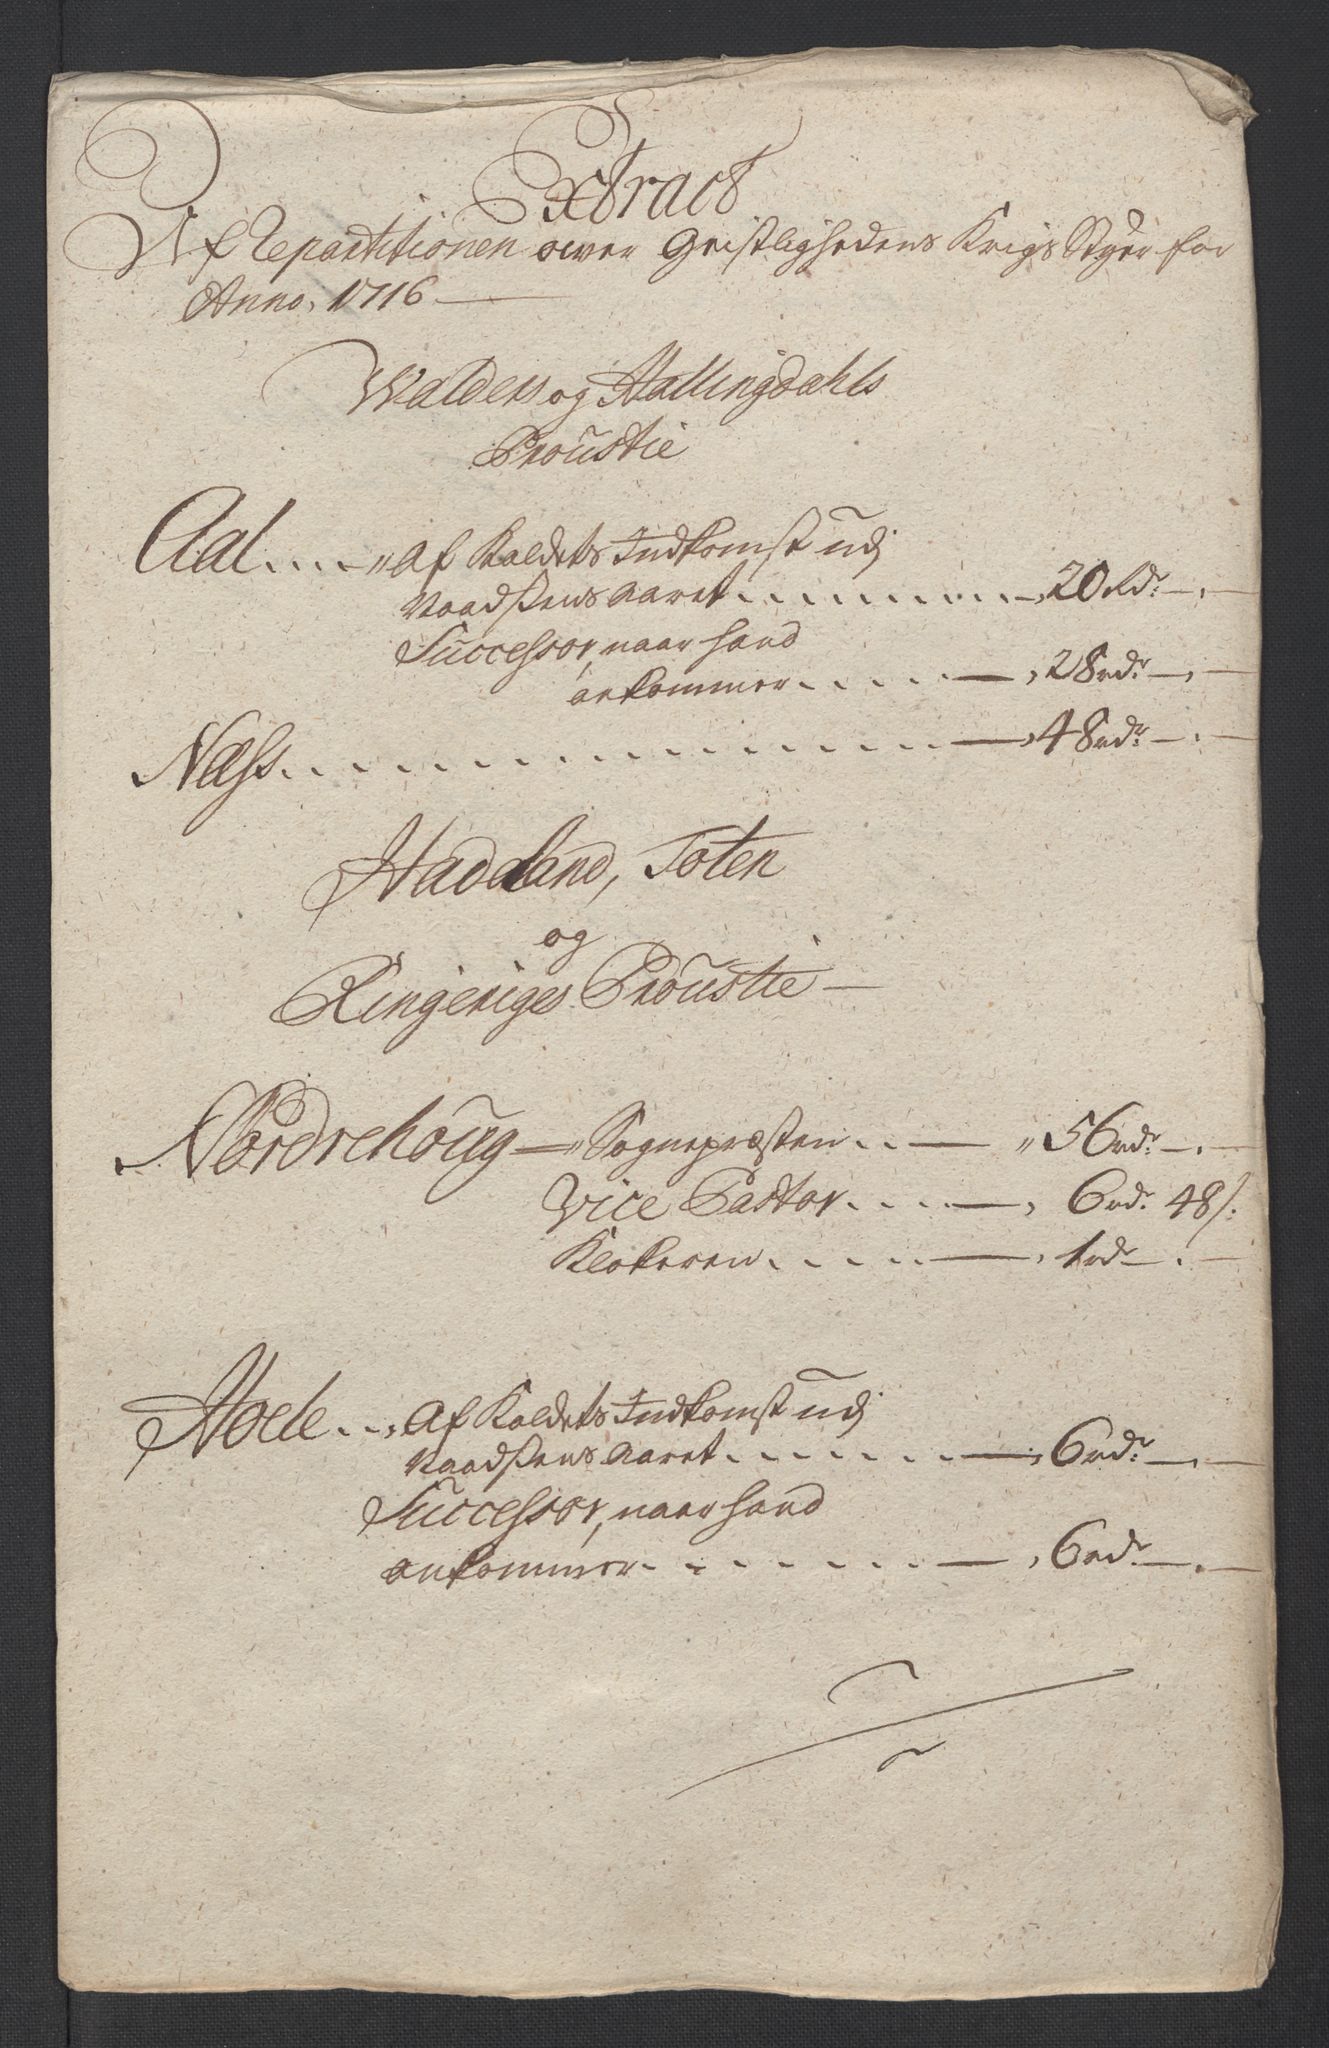 Extract
Af Repartitionen ower Geistlighedens Krigs Styer for
Anno, 1716
Walders og Hallingdahls
Proustie
Aal....„ Af Kaldets Indkomst udj
Naadßens aaret 20 Rdr
Successor, naar hand
ankommer 28 rdr
Næss 48 rdr
Hadeland, Toten
og
Ringeriges Proustie
Nordrehoug „ Sognepræsten „ 56 rdr
Vice Pastor 6 rdr 48 ß.
Klokeren 1 rdr
Hoele Af Kaldets Indkomst udj
Naadßens aaret 6 rdr
Successor, naar hand
ankommer 6 rdr